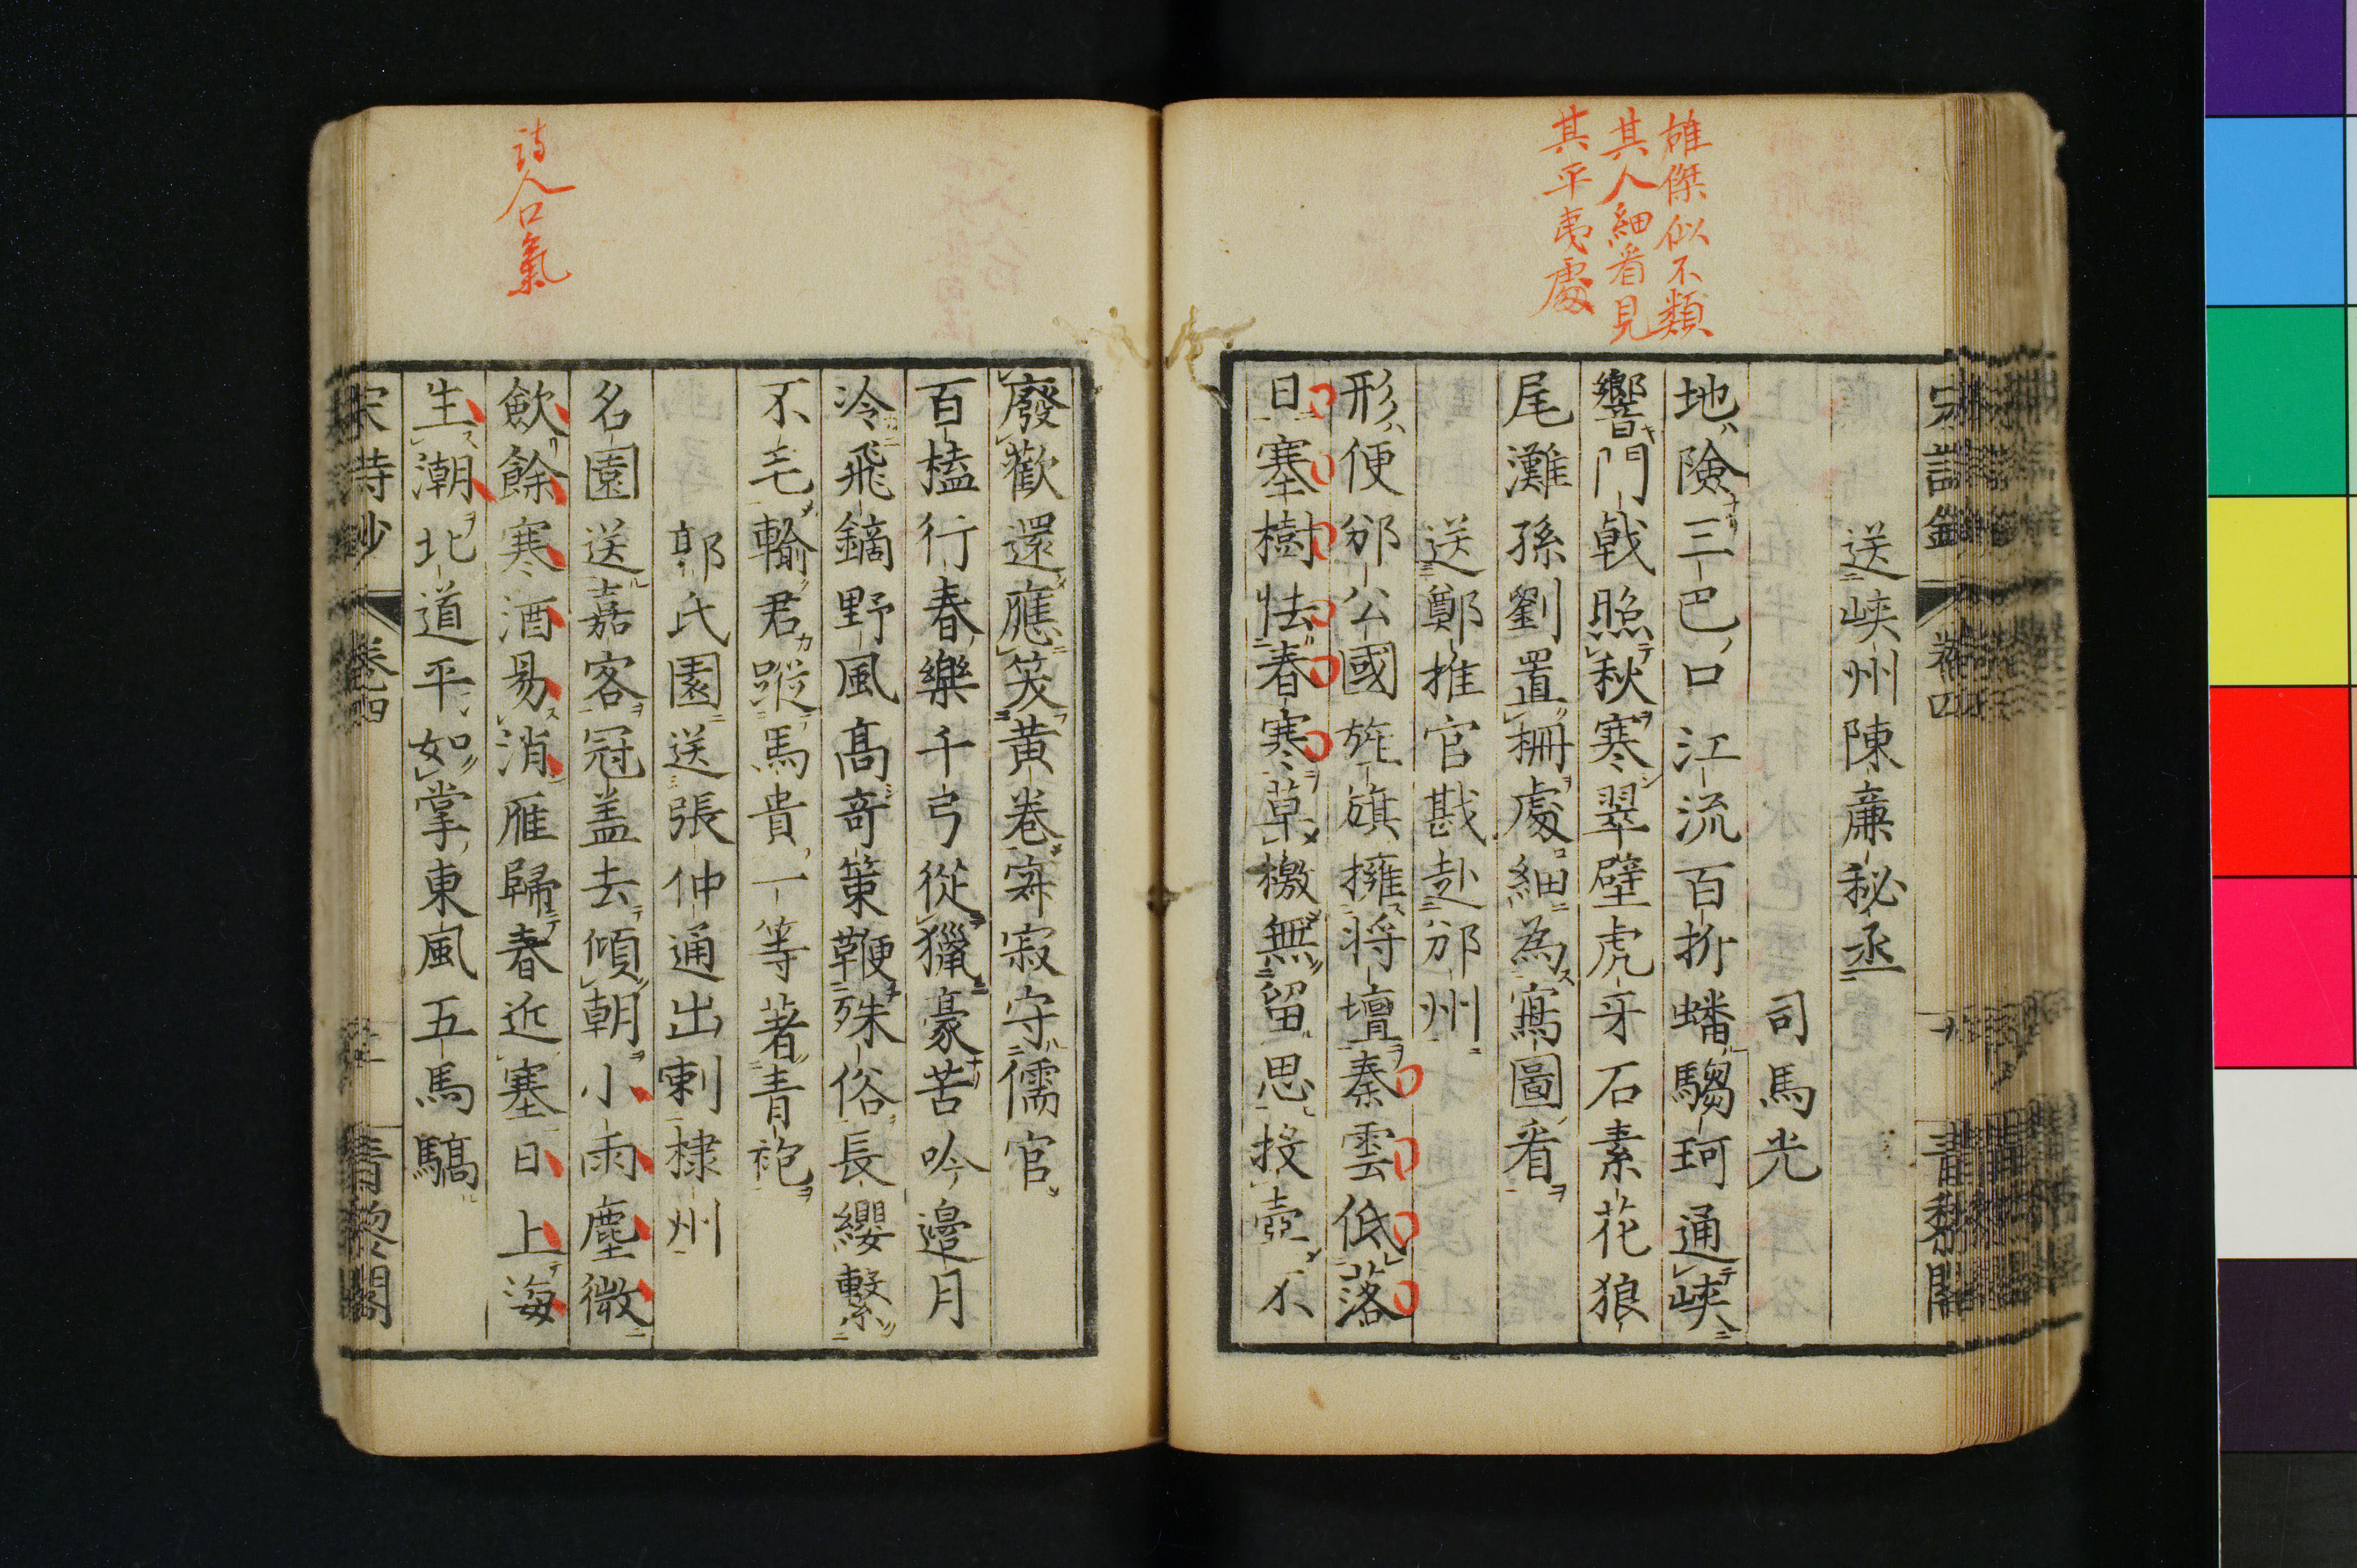 雄傑似不類
其人細看見
其平夷處
送峽州陳廉秘丞
司馬光
地險三巴口江流百折蟠騶珂通峽
響門戟照秋寒翠壁虎牙石素花狼
尾灘孫劉置柵處細為寫圖看
送鄭推官戡赴邠州
形便邠公國旌旗擁将壇秦雲低落
日塞樹怯春寒草檄無留思投壺不
詩人口氣
廢歡還應笑黄卷寂寂守儒官
百榼行春樂千弓從獵豪苦吟邉月
冷飛鏑野風髙奇策鞭殊俗長纓繫
不毛輸君蹤馬貴一等著青袍
郭氏園送張仲通出刺棣州
名園送嘉客冠盖去傾朝小雨塵微
飲餘寒酒易消雁歸春近塞日上海
生潮北道平如掌東風五馬驕
宋詩鈔
卷四
青黎閣